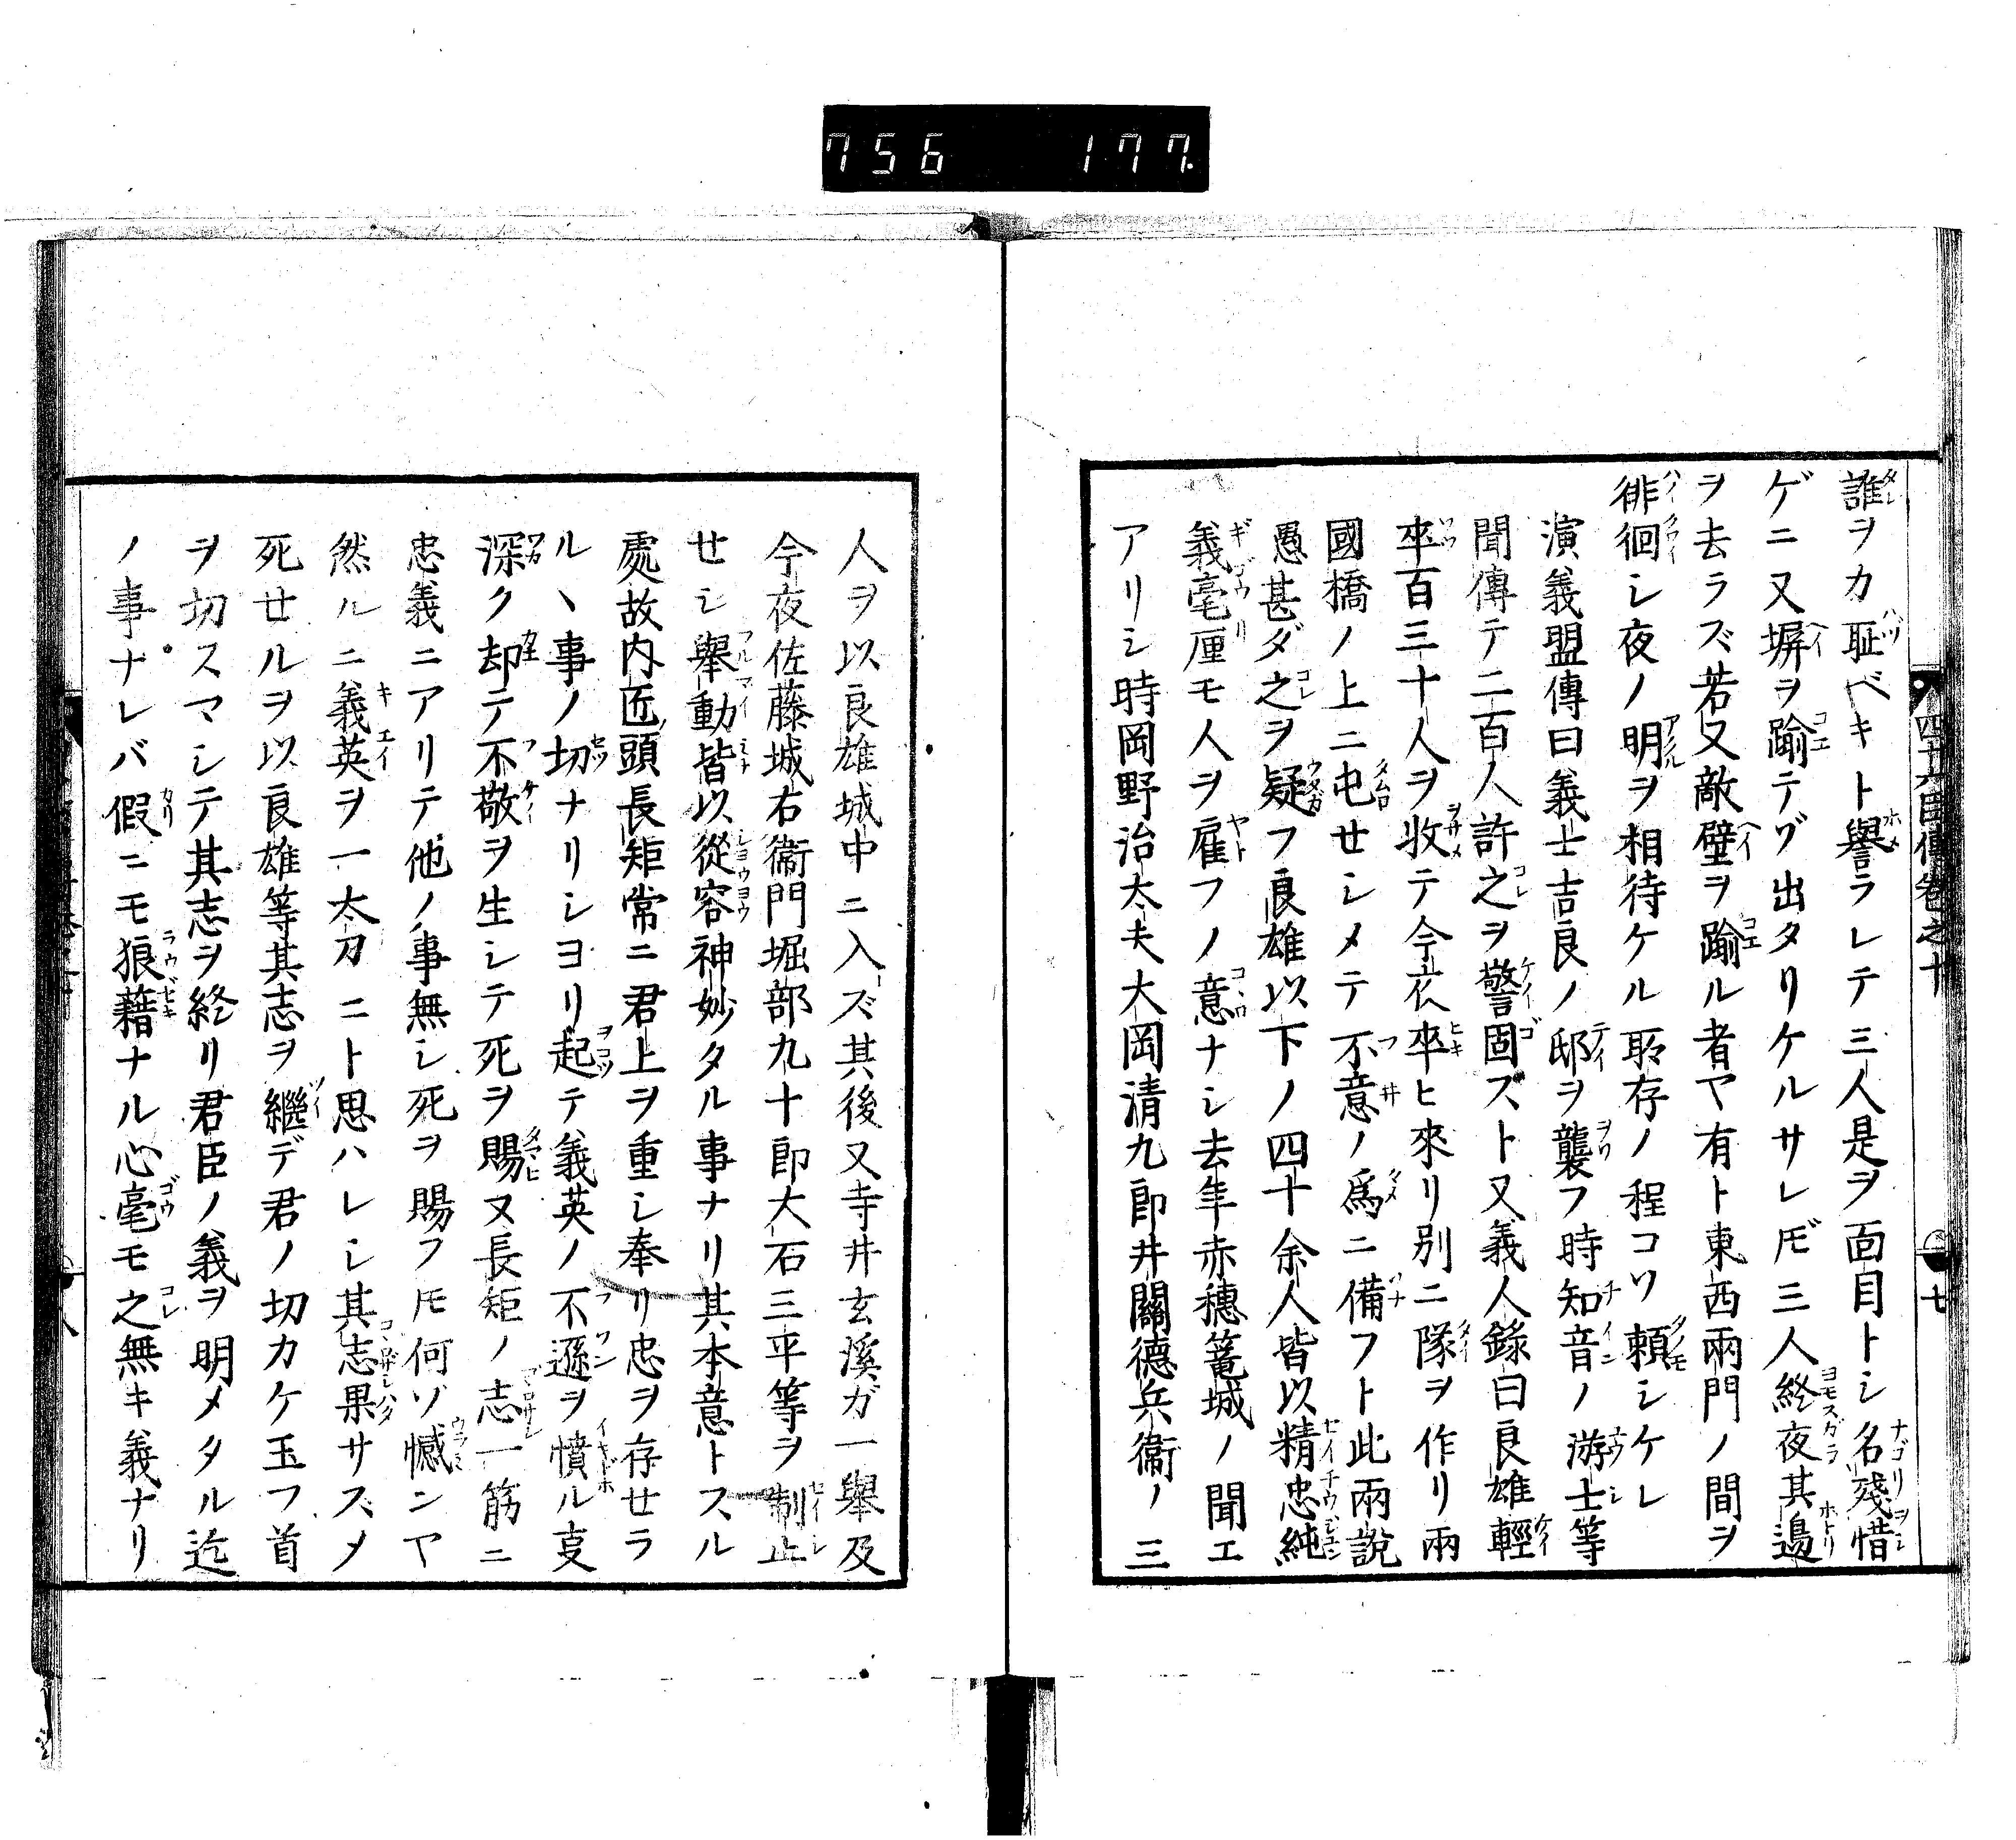 756 177.
四十六臣傳卷之十
七
誰ヲカ耻ベキト譽ラレテ三人是ヲ面目トシ名殘惜
ゲニ又塀ヲ踰テゾ出タリケルサレ𪜈三人終夜其邉
ヲ去ラズ若又敵壁ヲ踰ル者ヤ有ト東西兩門ノ間ヲ
徘徊シ夜ノ明ヲ相待ケル耴存ノ程コソ頼シケレ
演義盟傳曰義士吉良ノ邸ヲ襲フ時知音ノ游士等
聞傳テ二百人許之ヲ警固ズト又義人錄曰良雄輕
卒百三十人ヲ收テ今夜卒ヒ來リ別ニ隊ヲ作リ兩
國橋ノ上ニ屯セシメテ不意ノ爲ニ備フト此兩說
愚甚ダ之ヲ疑フ良雄以下ノ四十余人皆以精忠純
義毫厘モ人ヲ雇フノ意ナシ去年赤穗篭城ノ聞エ
アリシ時岡野治太夫大岡清九郎井關德兵衞ノ三
人ヲ以良雄城中ニ入ズ其後又寺井玄溪ガ一擧及
今夜佐藤城右衞門堀部九十郎大石三平等ヲ制止
せシ擧動皆以從容神妙タル事ナリ其本意トスル
處故内匠頭長矩常ニ君上ヲ重シ奉リ忠ヲ存せラ
ルヽ事ノ切ナリシヨリ起テ義英ノ不遜ヲ憤ル叓
深ク却テ不敬ヲ生シテ死ヲ賜ヌ長矩ノ志一筋ニ
忠義ニアリテ他ノ事無シ死ヲ賜フ𪜈何ゾ憾ンヤ
然ルニ義英ヲ一太刀ニト思ハレシ其志果サズメ
死せルヲ以良雄等其志ヲ繼デ君ノ切カケ玉フ首
ヲ切スマシテ其志ヲ終リ君臣ノ義ヲ明メタル迄
ノ事ナレバ假ニモ狼藉ナル心毫モ之無キ義ナリ
八